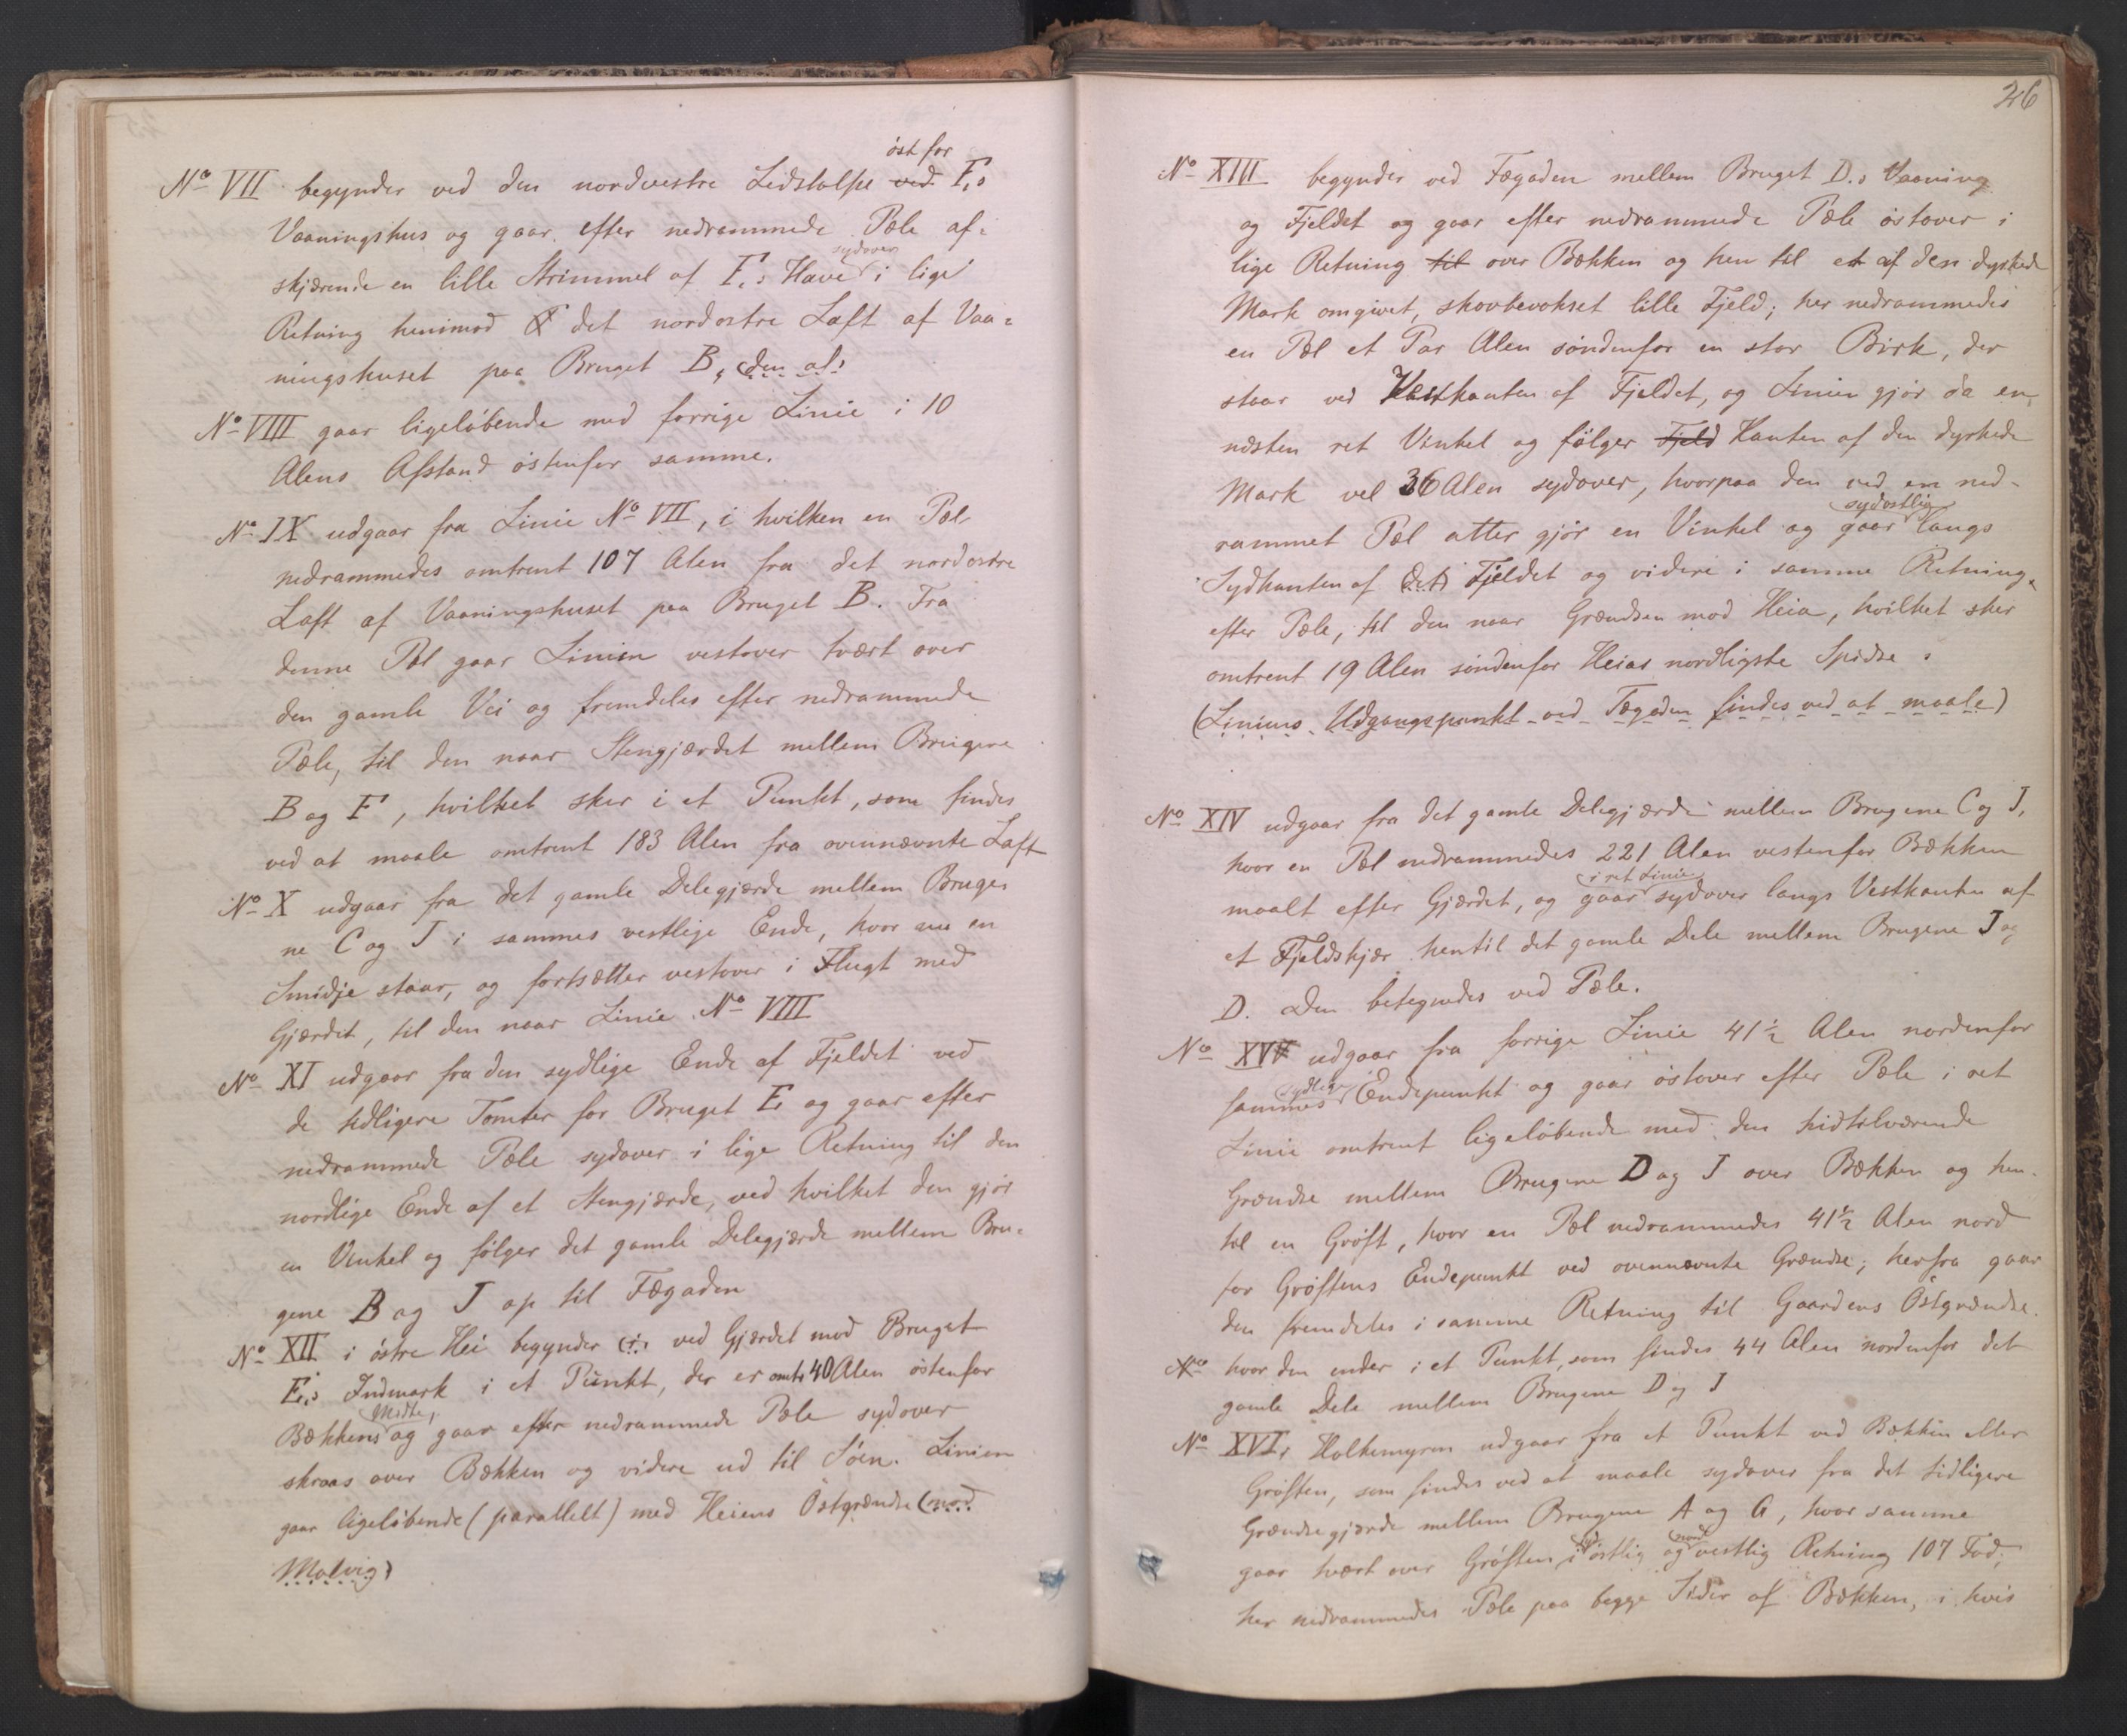 öst for
No VII begynder ved den nordvestre Ledstolpe ved F.s
Vaaningshus og gaar efter nedrammede Pæle af=
sydover
skjærende en lille Strimmel af F.s Have i lige
Retning henimod det nordostre Laft af Vaa=
ningshuset paa Bruget B, (den al)
No VIII gaar ligeløbende med forrige Linie i 10
Alens Afstand østenfor samme.
No IX udgaar fra Linie No VII, i hvilken en Pæl
nedrammedes omtrent 107 Alen fra det nordostre
Laft af Vaaningshuset paa Bruget B. Fra
denne Pæl gaar Linien vestover tvært over
den gamle Vei og fremdeles efter nedrammede
Pæle, til den naar Stengjærdet mellem Brugene
B og F, hvilket sker i et Punkt, som findes
ved at maale omtrent 183 Alen fra ovennævnte Laft
No X udgaar fra det gamle Delegjærde mellem Bruge-
ne C og J i sammes vestlige Ende, hvor nu en
Smidje staar, og fortsætter vestover i Flugt med
Gjærdet, til den naar Linie No VIII
No XI udgaar fra den sydlige Ende af Fjeldet ved
de tidligere Tomter for Bruget E og gaar efter
nedrammede Pæle sydover i lige Retning til den
nordlige Ende af et Stengjærde, ved hvilket den gjør
en Vinkel og følger det gamle Delegjærde mellem Bru=
gene B og J op til Fægaden
No XII i østre Hei begynder (i) ved Gjærdet mod Bruget
E.s Indmark i et Punkt, der er omtr 40 Alen østenfor
Midte,
Bækkens og gaar efter nedrammede Pæle sydover
skraas over Bækken og videre ud til Søen. Linien
gaar ligeløbende (parallelt) med Heiens Østgrændse (mod
Molvig)
26
No XIII begynder ved Fægaden mellem Bruget D.s Vaaning
og Fjeldet og gaar efter nedrammede Pæle østover i
lige Retning til over Bækken og hen til et af den dyrkede
Mark omgivet, skovbevokset lille Fjeld; her nedrammedes
en Pæl et Par Alen søndenfor en stor Birk, der
staar ved Vestkanten af Fjeldet, og Linien gjør da en
næsten ret Vinkel og følger Fjeld Kanten af den dyrkede
Mark vel 36 Alen sydover, hvorpaa den ved en ned-
sydostlig
rammet Pæl atter gjør en Vinkel og gaar langs
Sydkanten af (det) Fjeldet og videre i samme Retning
efter Pæle, til den naar Grændsen mod Heia, hvilket sker
omtrent 19 Alen søndenfor Heias nordligste Spidse.
(Liniens Udgangspunkt ved Fægaden findes ved at maale)
No XIV udgaar fra det gamle Delegjærde mellem Brugene C og J,
hvor en Pæl nedrammedes 221 Alen vestenfor Bækken
i ret Linie
maalt efter Gjærdet, og gaar sydover langs Vestkanten af
et Fjeldskjær hentil det gamle Dele mellem Brugene J og
D. Den betegnedes ved Pæle.
No XV udgaar fra forrige Linie 41½ Alen nordenfor
sydlige
sammes Endepunkt og gaar østover efter Pæle i ret
Linie omtrent ligeløbende med den hidtilværende
Grændse mellem Brugene D og J over Bækken og hen-
til en Grøft, hvor en Pæl nedrammedes 41½ Alen nord
for Grøftens Endepunkt ved ovennævnte Grændse; herfra gaar
den fremdeles i samme Retning til Gaardens Østgrændse.
No hvor den ender i et Punkt, som findes 44 Alen nordenfor det
gamle Dele mellem Brugene D og J
No XVI, Holkemyren udgaar fra et Punkt ved Bækken eller
Grøften, som findes ved at maale sydover fra det tidligere
Grændsegjærde mellem Brugene A og G, hvor samme
syd nord
gaar tvært over Grøften i østlig og vestlig Retning 107 Fod;
her nedrammedes Pæle paa begge Sider af Bækken, i hvis